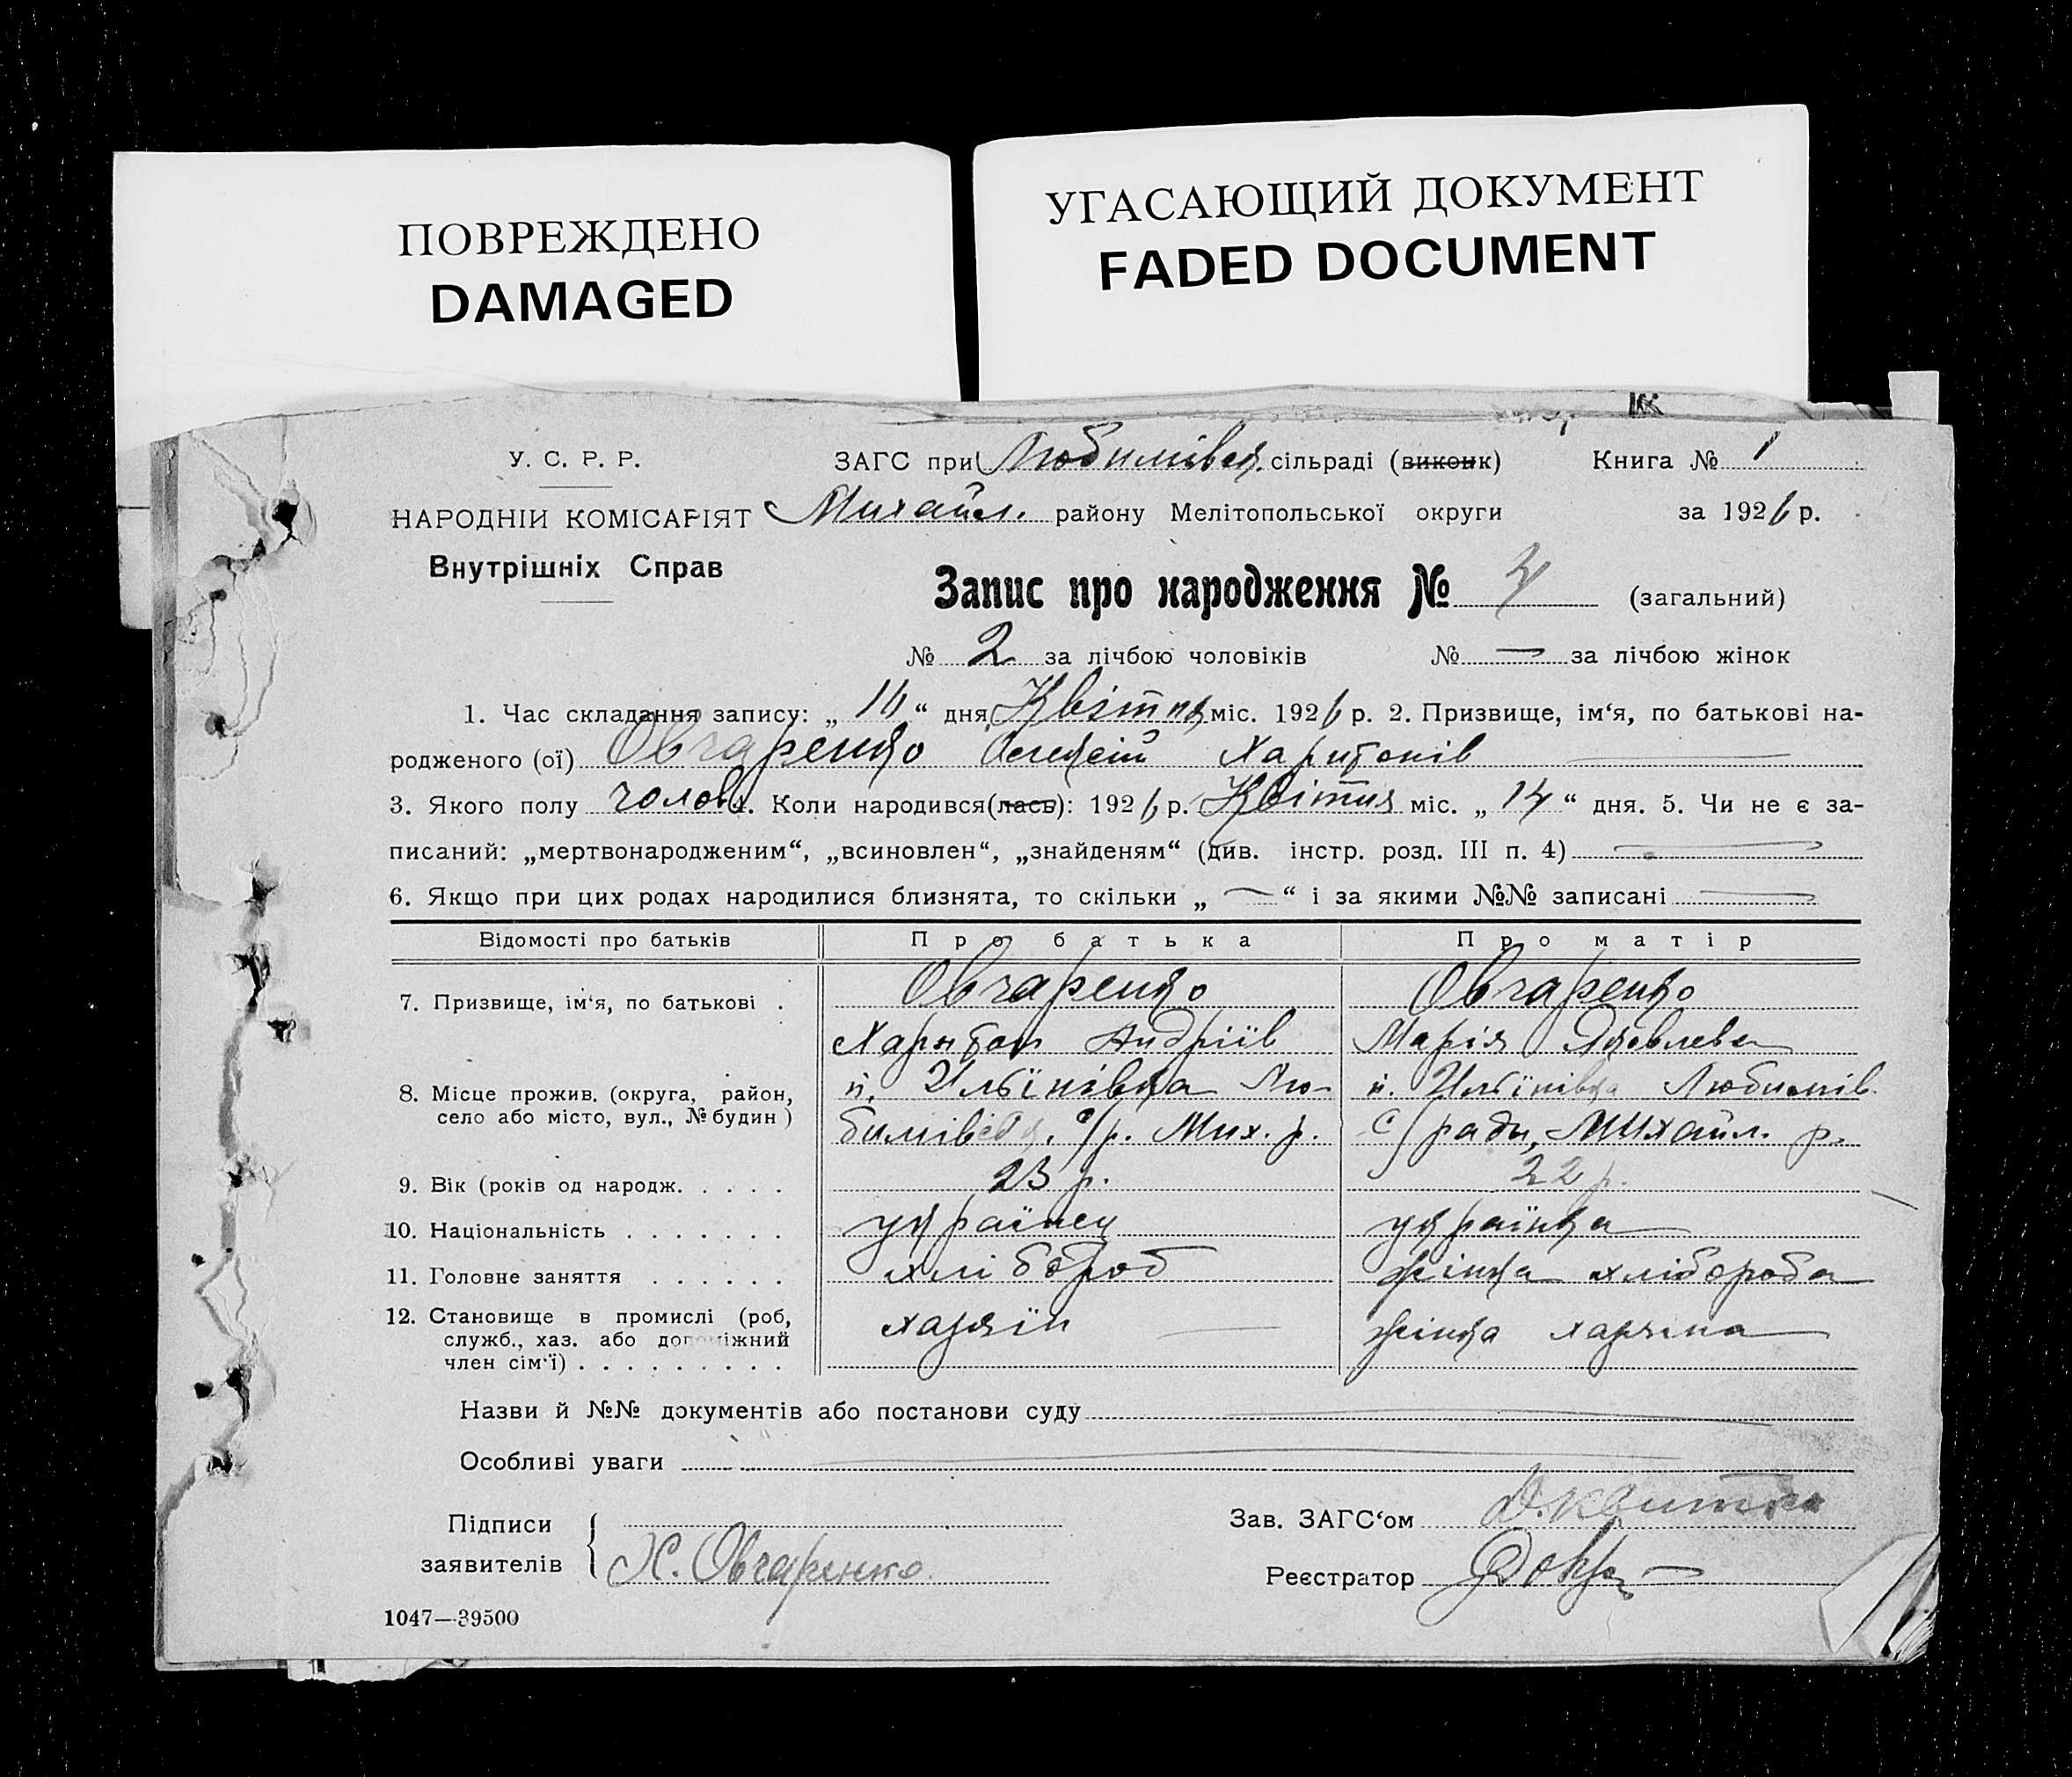 ПОВРЕЖДЕНО
DAMAGED
УГАСАЮЩИЙ ДОКУМЕНТ
FADED DOCUMENT
У. С. Р. Р.
НАРОДНІЙ КОМІСАРІЯТ
Внутрішніх Справ
ЗАГС при Любимівск. сільраді (виконк) Книга № 1
Михайл. району Мелітопольської округи за 1926 р.
Запис про народження № 4 (загальний)
№ 2 за лічбою чоловіків № — за лічбою жінок
1. Час складання запису: „ 16 “ дня Квітня міс. 1926 р. 2. Призвище, ім‘я, по батькові на-
родженого (ої) Овчаренко Харитонів
3. Якого полу чолов. 4. Коли народився(лась): 1926 р. Квітня міс. „ 14 “ дня. 5. Чи не є за-
писаний: „мертвонародженим“, „всиновлен“, „знайденям“ (див. інстр. розд. III п. 4)
6. Якщо при цих родах народилися близнята, то скільки „ — “ і за якими №№ записані —
Відомості про батьків Про батька Про матір
7. Призвище, ім‘я, по батькові . Овчаренко Овчаренко
Харитон Андріїв Марія Яковлева
8. Місце прожив. (округа, район, п. Ильїнівка Лю- п. Ильїнівка Любимів.
село або місто, вул., № будин ) бимівськ. с/р. Мих. р. с/ради, Михайл. р.
9. Вік (років од народж. . . . . 23 р. 22 р.
10. Національність . . . . . . . українец українка
11. Головне заняття . . . . . . хлібороб жінка хлібороба
12. Становище в промислі (роб, хазяїн жінка хазяина
служб., хаз. або допоміжний
член сім‘ї) . . . . . . . . .
Назви й №№ документів або постанови суду
Особливі уваги
Підписи
заявителів Х. Овчаренко.
Зав. ЗАГС‘ом Д. Квитка
Реєстратор
1047—39500